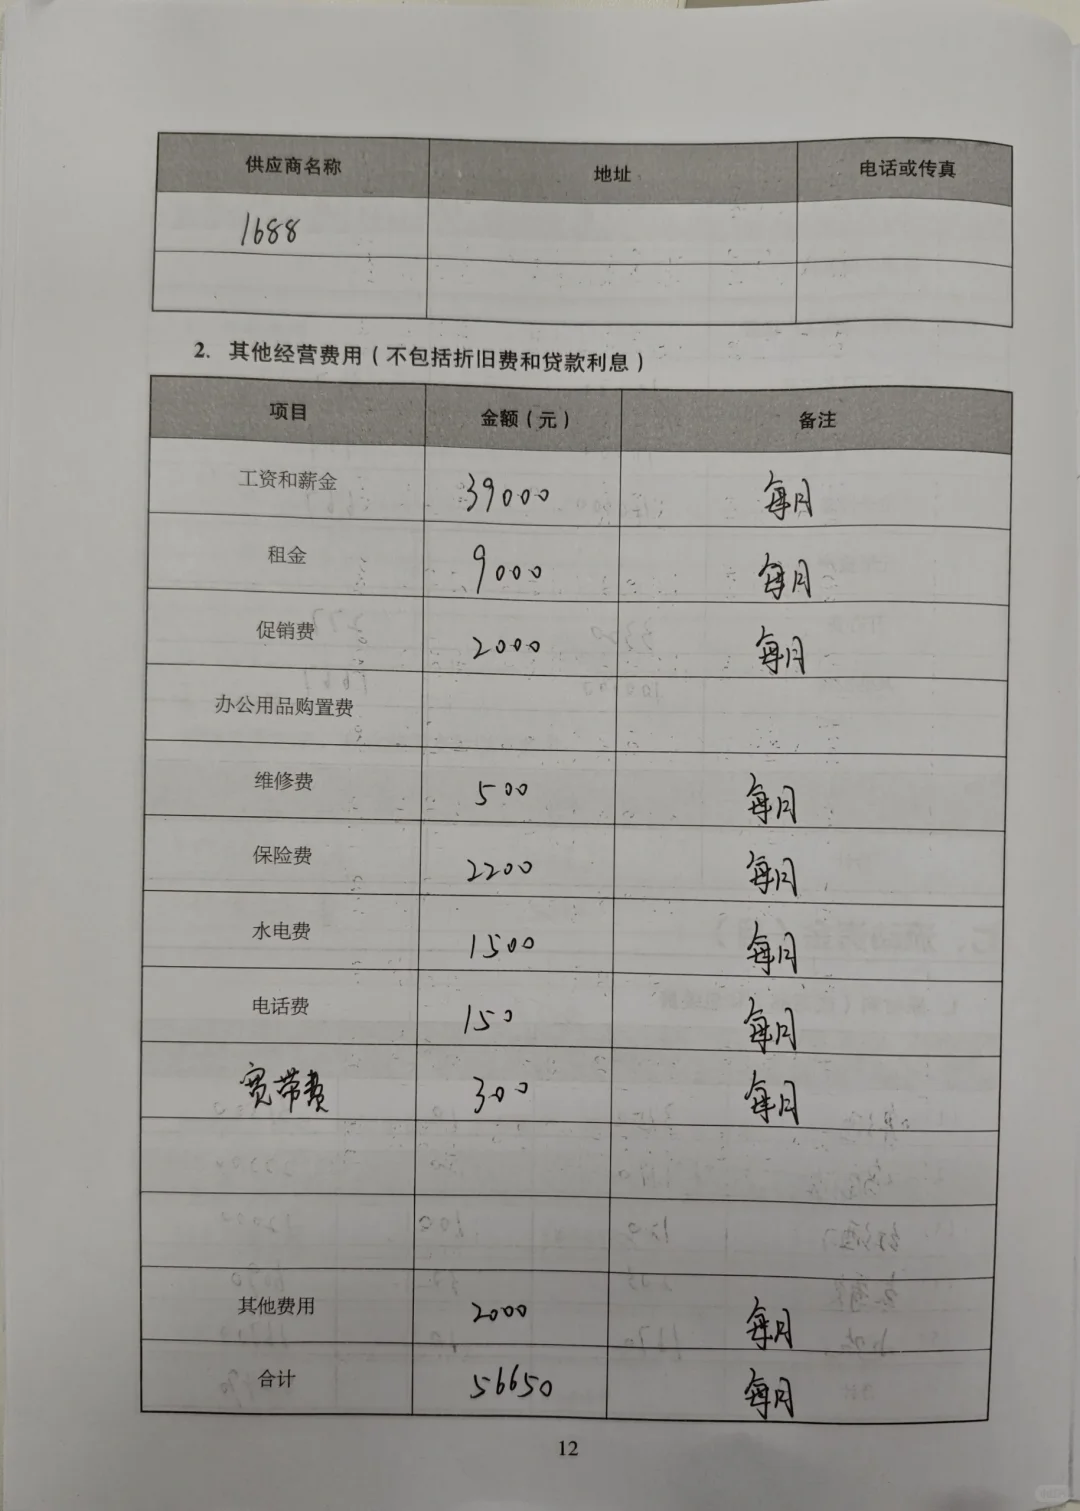 供应商名称 地址 电话或传真
1688
2. 其他经营费用（不包括折旧费和贷款利息）
项目 金额（元） 备注
工资和薪金 39000 每月
租金 9000 每月
促销费 2000 每月
办公用品购置费
维修费 500 每月
保险费 2200 每月
水电费 1500 每月
电话费 150 每月
宽带费 300 每月
其他费用 2000 每月
合计 56650 每月
12